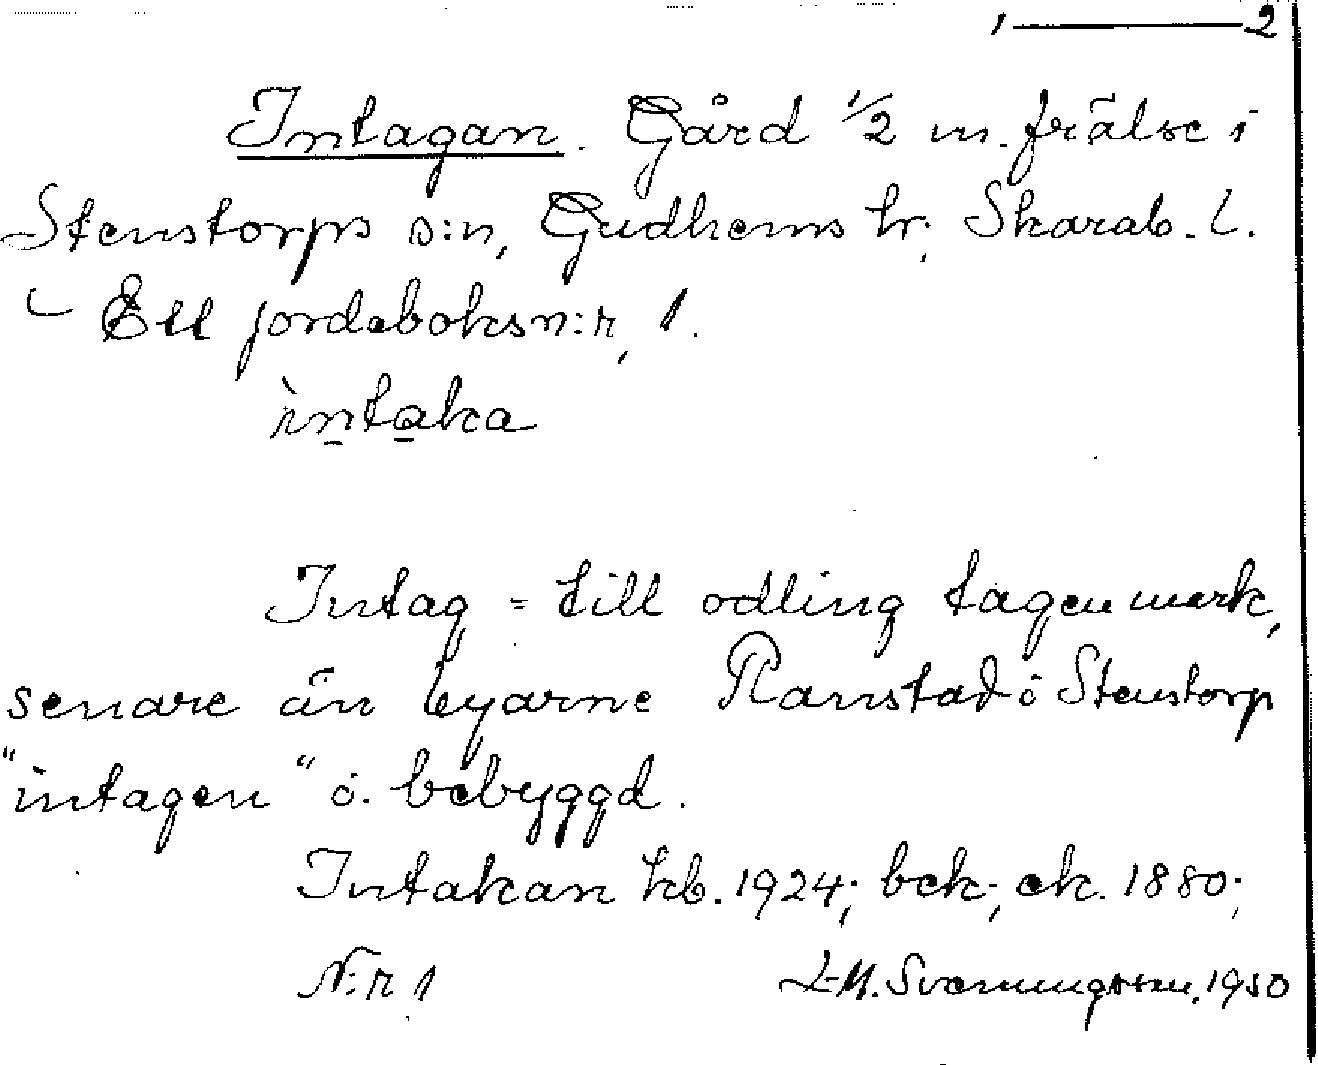 1 — 2
Intagan. Gård 1/2 m. frälse i
Stenstorps s:n, Gudhems hr. Skarab. l.
Ett jordeboksn:r, 1.
ìntaka
Intag = till odling tagen mark,
senare än byarne Ranstad o Stenstorp
"intagen" o. bebyggd.
Intakan hb. 1924; bek; ek. 1880;
N:r 1 L-M. Svenungsson, 1950